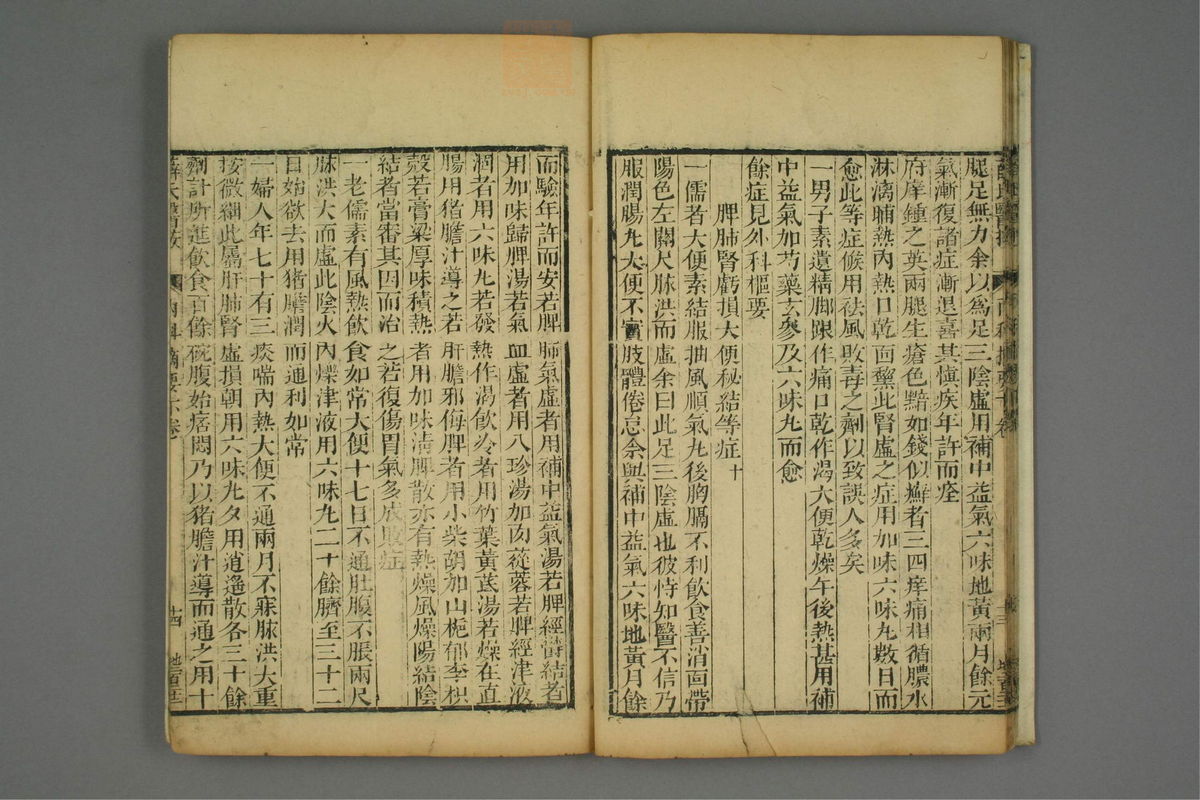 腿足無力余以爲足三陰虛用補中益氣六味地黃兩月餘元
氣漸復諸症漸退喜其愼疾年許而痊
府庠鍾之英兩腿生瘡色黯如錢似癬者三四痒痛相循膿水
淋漓晡熱內熱口乾面黧此腎虛之症用加味六味丸數日而
愈此等症候用祛風敗毒之劑以致誤人多矣
一男子素遺精脚跟作痛口乾作渴大便乾燥午後熱甚用補
中益氣加芍藥玄參及六味丸而愈
餘症見外科樞要
脾肺腎虧損大便秘結等症十
一儒者大便素結服搜風順氣丸後胸膈不利飲食善消面帶
陽色左關尺脉洪而虛余曰此足三陰虛也彼恃知醫不信乃
服潤腸丸大便不實肢體倦怠余與補中益氣六味地黃月餘
而驗年許而安若脾肺氣虛者用補中益氣湯若脾經鬱結者
用加味歸脾湯若氣血虛者用八珍湯加肉蓯蓉若脾經津液
涸者用六味丸若發熱作渴飲冷者用竹葉黃芪湯若燥在直
腸用猪膽汁導之若肝膽邪侮脾者用小柴胡加山梔郁李枳
殼若膏粱厚味積熱者用加味淸脾散亦有熱燥風燥陽結陰
結者當審其因而治之若復傷胃氣多成敗症
一老儒素有風熱飲食如常大便十七日不通肚腹不脹兩尺
脉洪大而虛此陰火內爍津液用六味丸二十餘臍至三十二
日始欲去用猪膽潤而通利如常
一婦人年七十有三痰喘內熱大便不通兩月不寐脉洪大重
按微細此屬肝肺腎虛損朝用六味丸夕用逍遙散各三十餘
劑計所進飲食百餘碗腹始痞悶乃以猪膽汁導而通之用十
薛氏醫按
內科摘要下卷
十四